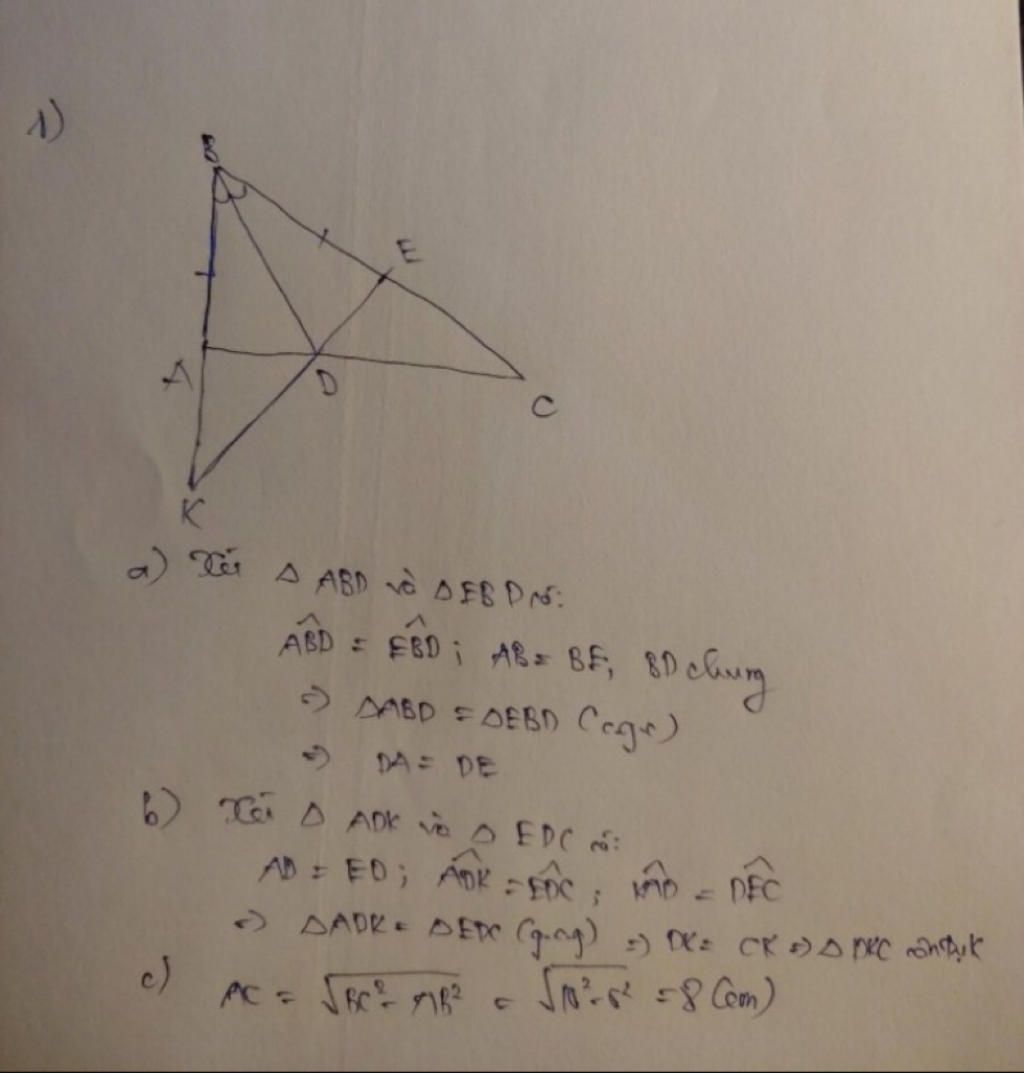 1)
B
E
A
D
C
K
a) Xét △ ABD và △EBD có:
ABD̂ = EBD̂ ; AB = BE, BD chung
=> △ABD = △EBD (c.g.c)
=> DA = DE
b) Xét △ ADK và △ EDC có:
AD = ED ; ADK̂ = EDĈ ; KAD̂ = DEĈ
=> △ADK = △EDC (g.c.g) => DK = CK => △ DKC cân tại K
c) AC = √BC² - AB² = √10² - 6² = 8 (cm)